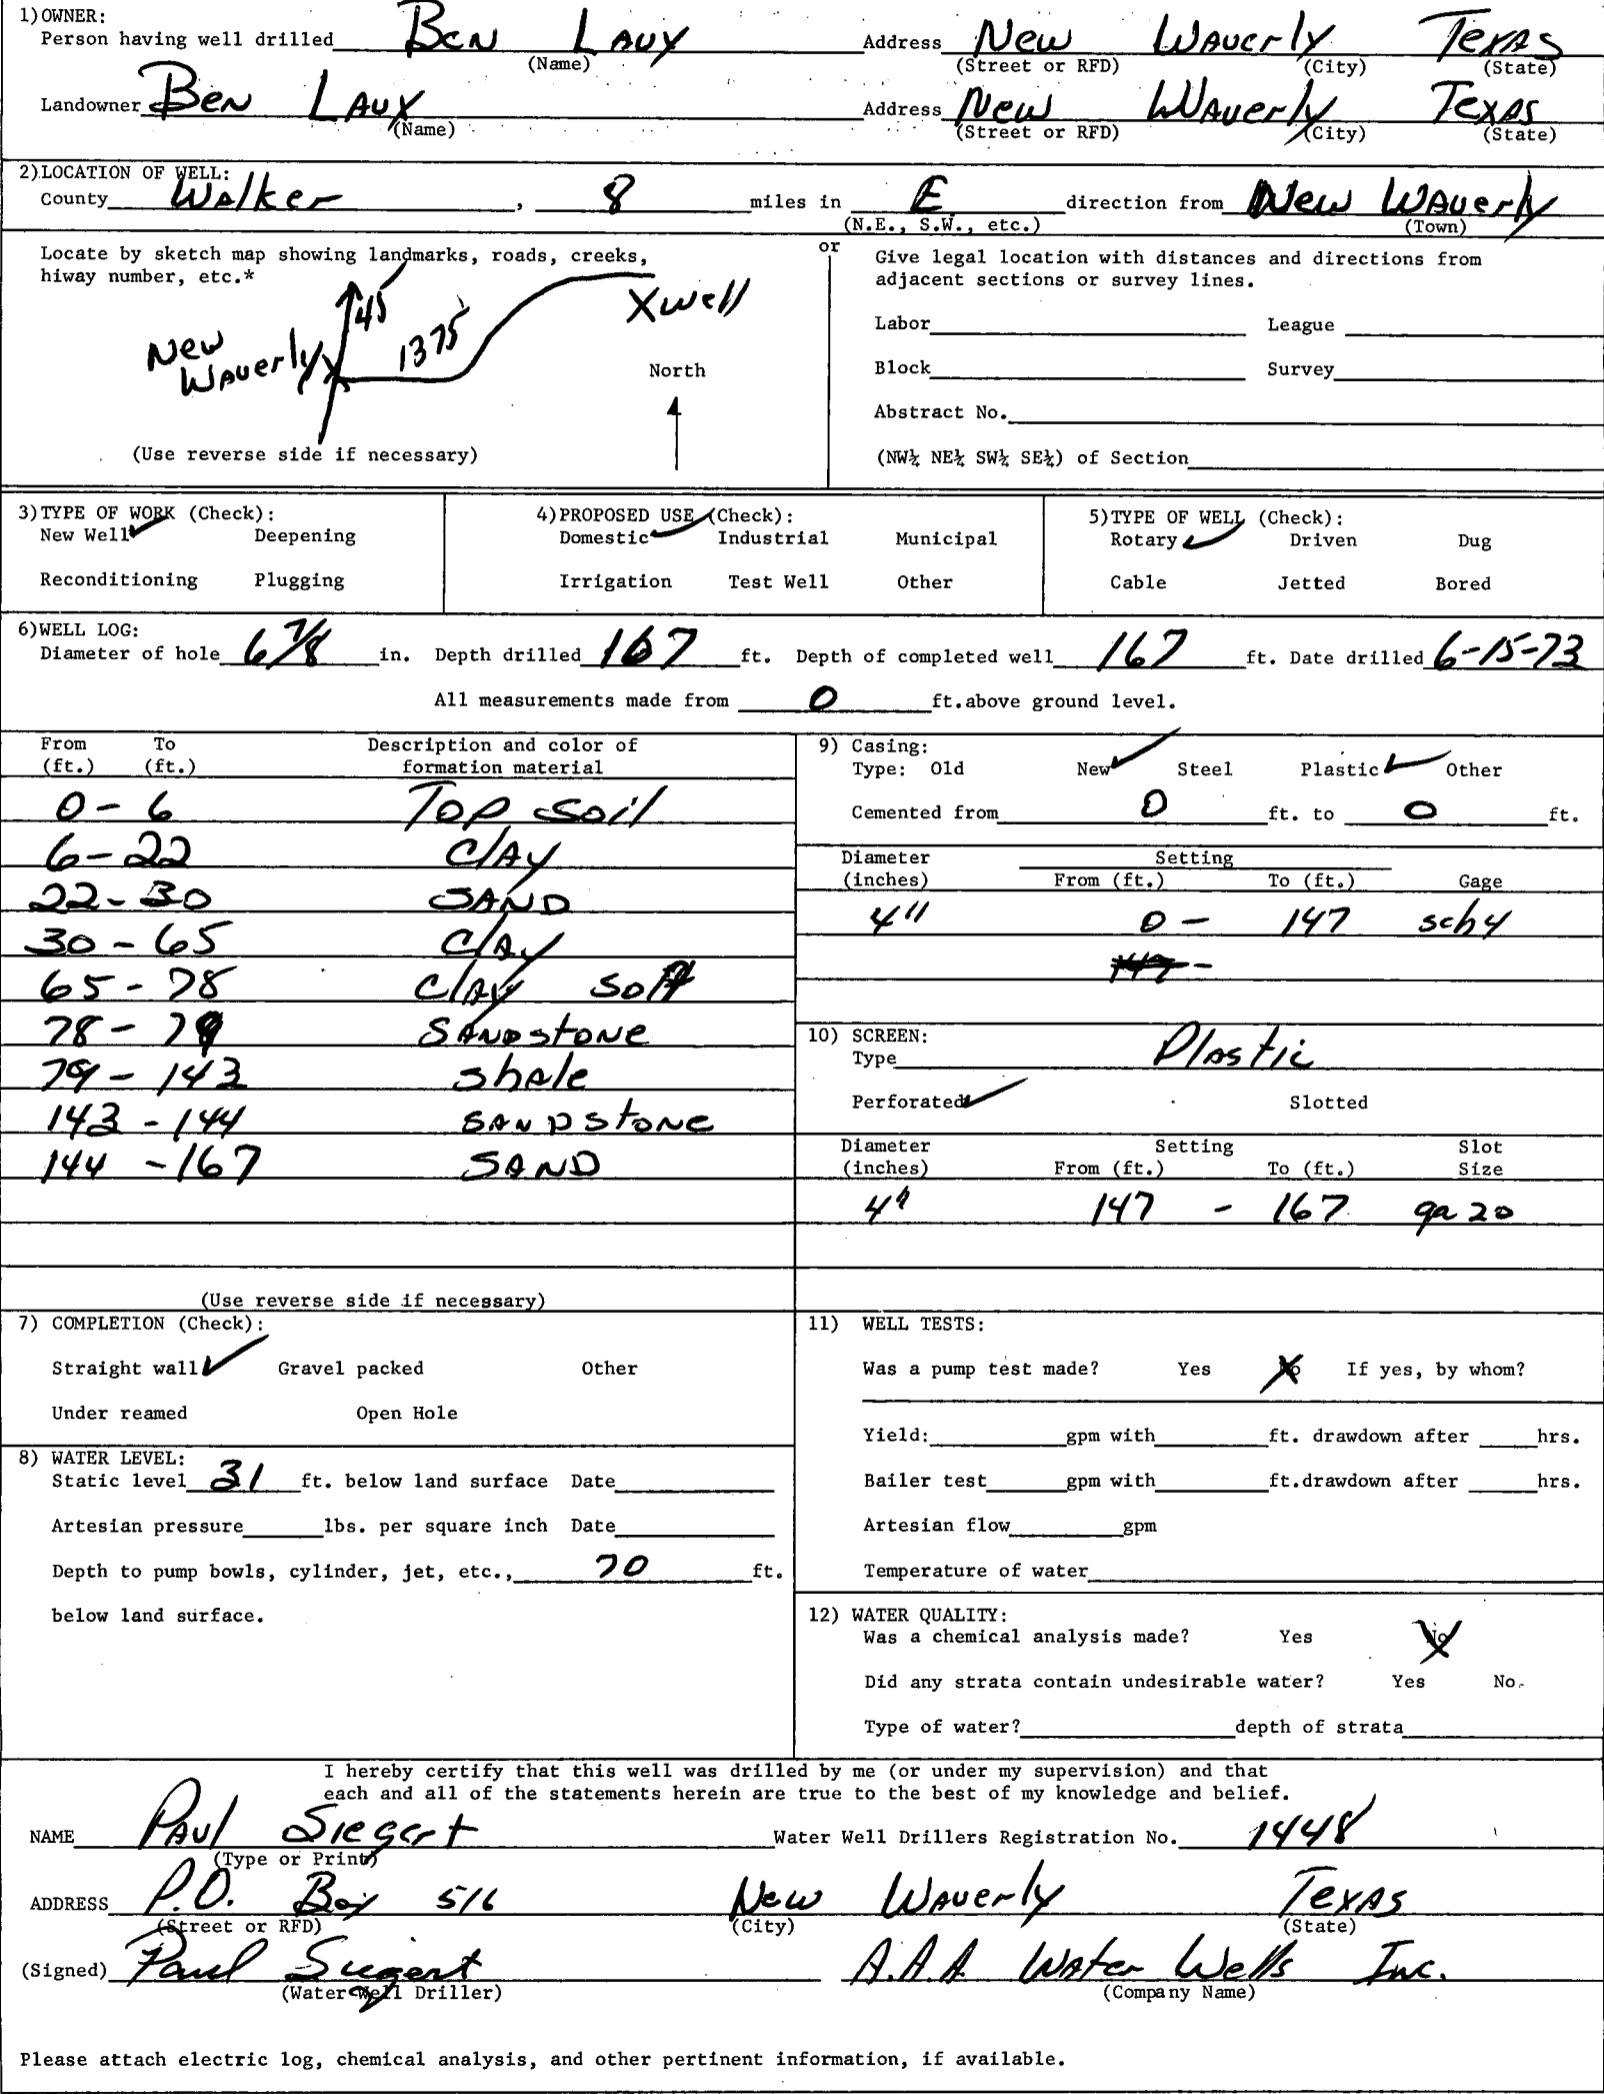 1) OWNER:
Person having well drilled Ben Laux Address New Waverly Texas
(Name) (Street or RFD) (City) (State)
Landowner Ben Laux Address New Waverly Texas
(Name) (Street or RFD) (City) (State)
2) LOCATION OF WELL:
County Walker, 8 miles in E direction from New Waverly
(N.E., S.W., etc.) (Town)
Locate by sketch map showing landmarks, roads, creeks,
hiway number, etc.*
or
Give legal location with distances and directions from
adjacent sections or survey lines.
45
1375
X well
New
Waverly X
North
(Use reverse side if necessary)
Labor League
Block Survey
Abstract No.
(NW¼ NE¼ SW¼ SE¼) of Section
3) TYPE OF WORK (Check):
New Well ✓ Deepening
Reconditioning Plugging
4) PROPOSED USE (Check):
Domestic ✓ Industrial Municipal
Irrigation Test Well Other
5) TYPE OF WELL (Check):
Rotary ✓ Driven Dug
Cable Jetted Bored
6) WELL LOG:
Diameter of hole 6 7/8 in. Depth drilled 167 ft. Depth of completed well 167 ft. Date drilled 6-15-73
All measurements made from 0 ft.above ground level.
From To Description and color of
(ft.) (ft.) formation material
0 - 6 Top soil
6 - 22 Clay
22 - 30 SAND
30 - 65 Clay
65 - 78 Clay soft
78 - 79 SANDstone
79 - 143 shale
143 - 144 SANDstone
144 - 167 SAND
(Use reverse side if necessary)
9) Casing:
Type: Old New ✓ Steel Plastic ✓ Other
Cemented from 0 ft. to 0 ft.
Diameter Setting
(inches) From (ft.) To (ft.) Gage
4" 0 - 147 sch4
147 -
10) SCREEN:
Type Plastic
Perforated ✓ Slotted
Diameter Setting Slot
(inches) From (ft.) To (ft.) Size
4" 147 - 167 ga 20
7) COMPLETION (Check):
Straight wall ✓ Gravel packed Other
Under reamed Open Hole
8) WATER LEVEL:
Static level 31 ft. below land surface Date
Artesian pressure lbs. per square inch Date
Depth to pump bowls, cylinder, jet, etc., 70 ft.
below land surface.
11) WELL TESTS:
Was a pump test made? Yes No If yes, by whom?
Yield: gpm with ft. drawdown after hrs.
Bailer test gpm with ft.drawdown after hrs.
Artesian flow gpm
Temperature of water
12) WATER QUALITY:
Was a chemical analysis made? Yes No
Did any strata contain undesirable water? Yes No
Type of water? depth of strata
I hereby certify that this well was drilled by me (or under my supervision) and that
each and all of the statements herein are true to the best of my knowledge and belief.
NAME Paul Siegert Water Well Drillers Registration No. 1448
(Type or Print)
ADDRESS P.O. Box 516 New Waverly Texas
(Street or RFD) (City) (State)
(Signed) Paul Siegert A.A.A. Water Wells Inc.
(Water Well Driller) (Company Name)
Please attach electric log, chemical analysis, and other pertinent information, if available.